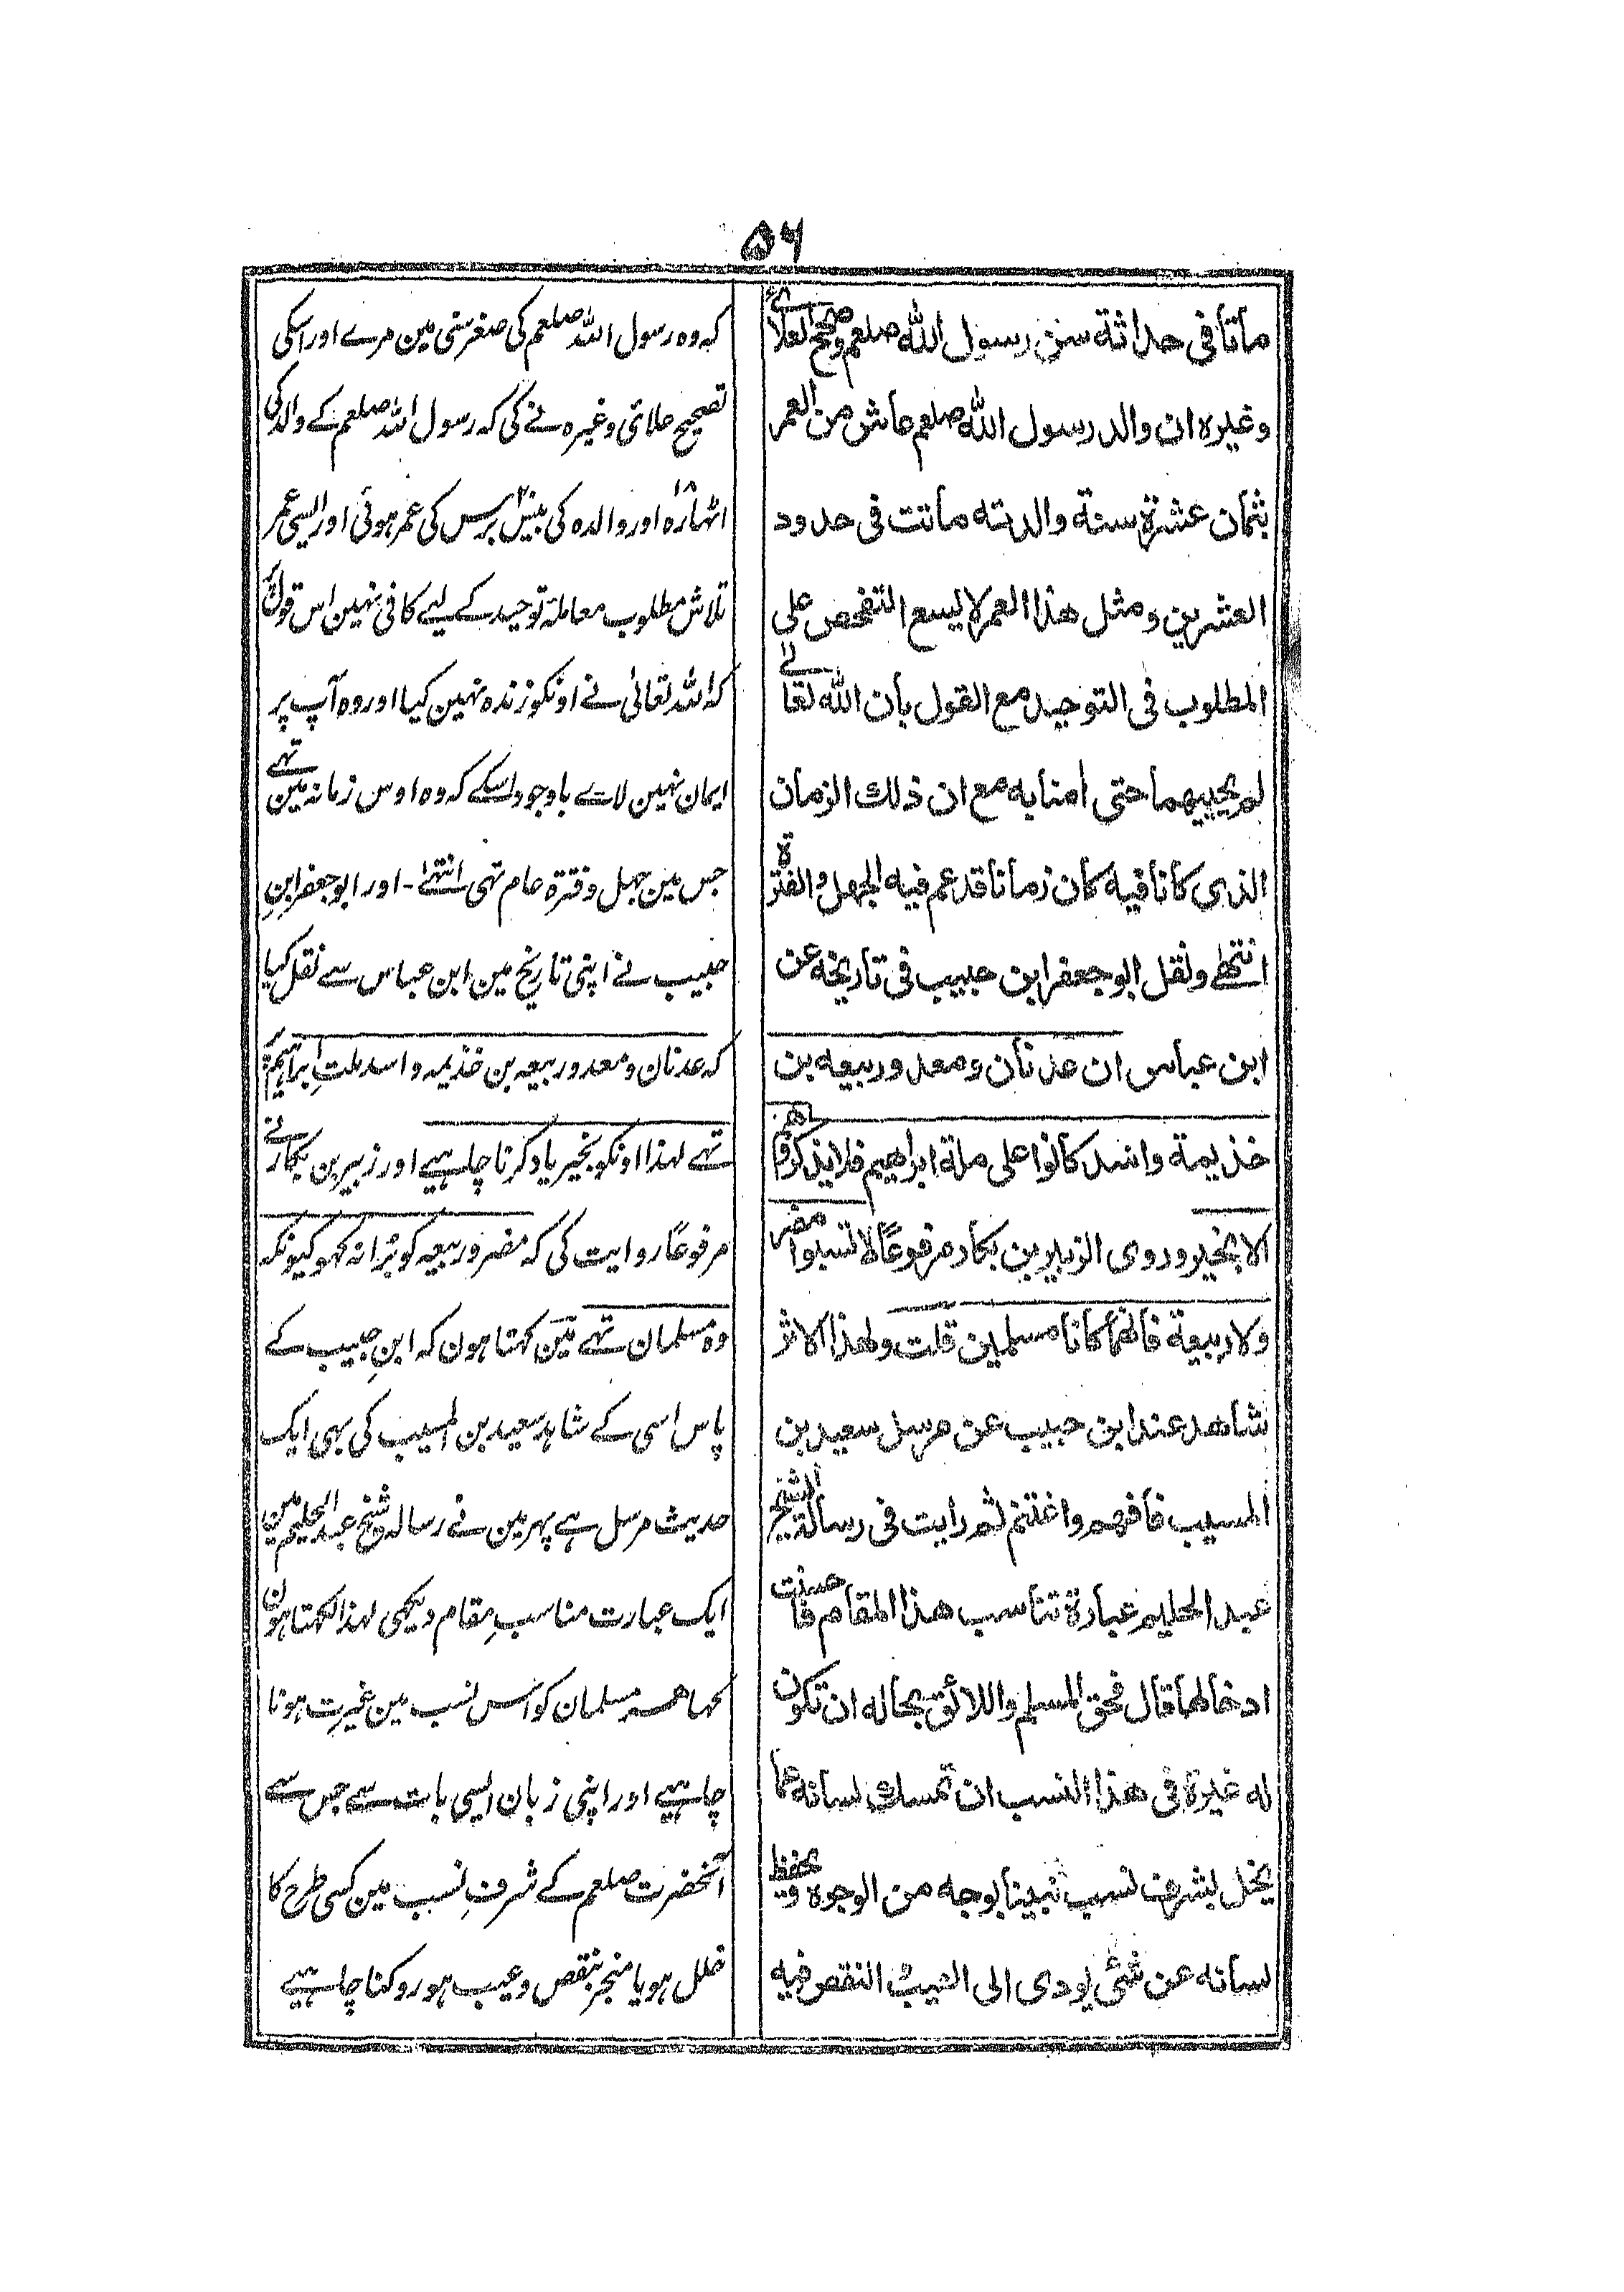 ۵۶
ماتا فی حداثة سن رسول الله صلعم وصحح العلائی
وغیره ان والد رسول الله صلعم عاش من العمر
بثمان عشرة سنة والدته ماتت فی حدود
العشرین ومثل هذا العمر لا یسع التفحص علی
المطلوب فی التوحید مع القول بان الله تعالے
لم یحییهما حتی امنا به مع ان ذلك الزمان
الذی کانا فیه کان زمانا قد عم فیه الجهل والفترة
انتهے ونقل ابو جعفر ابن حبیب فی تاریخه عن
ابن عباس ان عدنان ومعد وربیعه بن
خذیمة واسد کانوا علی ملة ابراهیم فلا یذکروهم
الا بخیر وروی الزبیر بن بکار مرفوعًا لا تسبوا مضر
ولا ربیعة فانهما کانا مسلمین قلت ولهذا الاثر
شاهد عند ابن حبیب عن مرسل سعید بن
المسیب فافهم واغتنم ثم رایت فی رسالة الشیخ
عبد الحلیم عبارة تناسب هذا المقام فاحسنت
ادخالها قال فحق المسلم واللائق بحاله ان تکون
له غیرة فی هذا النسب ان تمسك لسانه عما
یخل بشرف نسب نبینا بوجه من الوجوه ویحفظ
لسانه عن شئ یودی الی النقص فیه
که وه رسول الله صلعم کی صغرسنی مین مرے اور اسکی
تصحیح علائی وغیره نے کی که رسول الله صلعم کے والد کی
اٹهاره ۱۸ اور والده کی بیس ۲۰ برس کی عمر هوئی اور ایسی عمر
تلاش مطلوب معاملۂ توحید کے لیے کافی نهین اس قول
که الله تعالیٰ نے اونکو زنده نهین کیا اور وه آپ پر
ایمان نهین لائے باوجود اسکے که وه اوس زمانه مین تهے
جس مین جهل وفترة عام تهی انتهے - اور ابو جعفر ابنِ
حبیب نے اپنی تاریخ مین ابن عباس سے نقل کیا
که عدنان ومعد وربیعه بن خذیمه واسد ملتِ ابراهیم پر
تهے لهذا اونکو بخیر یاد کرنا چاهیے اور زبیر بن بکار نے
مرفوعًا روایت کی که مضر وربیعه کو بُرا نه کهو کیونکه
وه مسلمان تهے مین کهتا هون که ابنِ حبیب کے
پاس اسی کے شاهد سعید بن المسیب کی بهی ایک
حدیث مرسل هے پهر مین نے رساله شیخ عبد الحلیم مین
ایک عبارت مناسبِ مقام دیکهی لهذا لکهتا هون
کها هر مسلمان کو اس نسب مین غیرت هونا
چاهیے اور اپنی زبان ایسی بات سے جس سے
آنحضرت صلعم کے شرفِ نسب مین کسی طرح کا
خلل هو یا منجر بنقص وعیب هو روکنا چاهیے